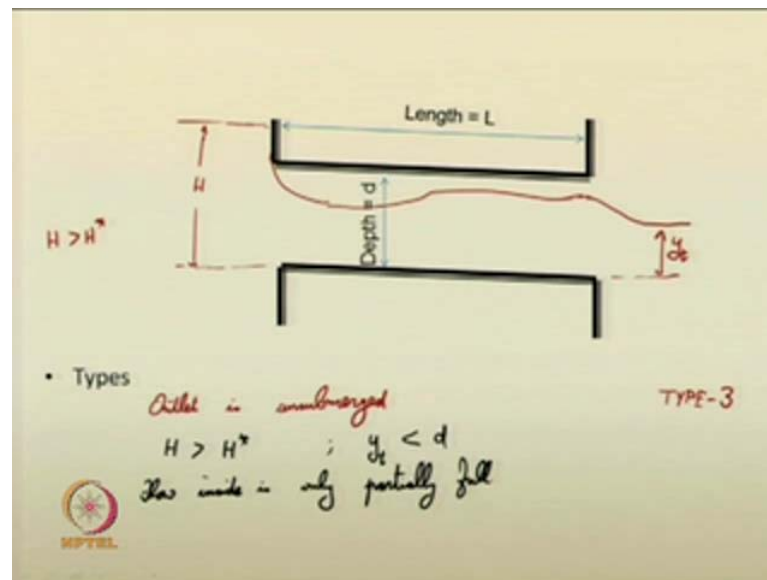 Length = L
H
Depth = d
H > H*
yt
• Types
Outlet is unsubmerged
TYPE-3
H > H* ; yt < d
Flow inside is only partially full
NPTEL